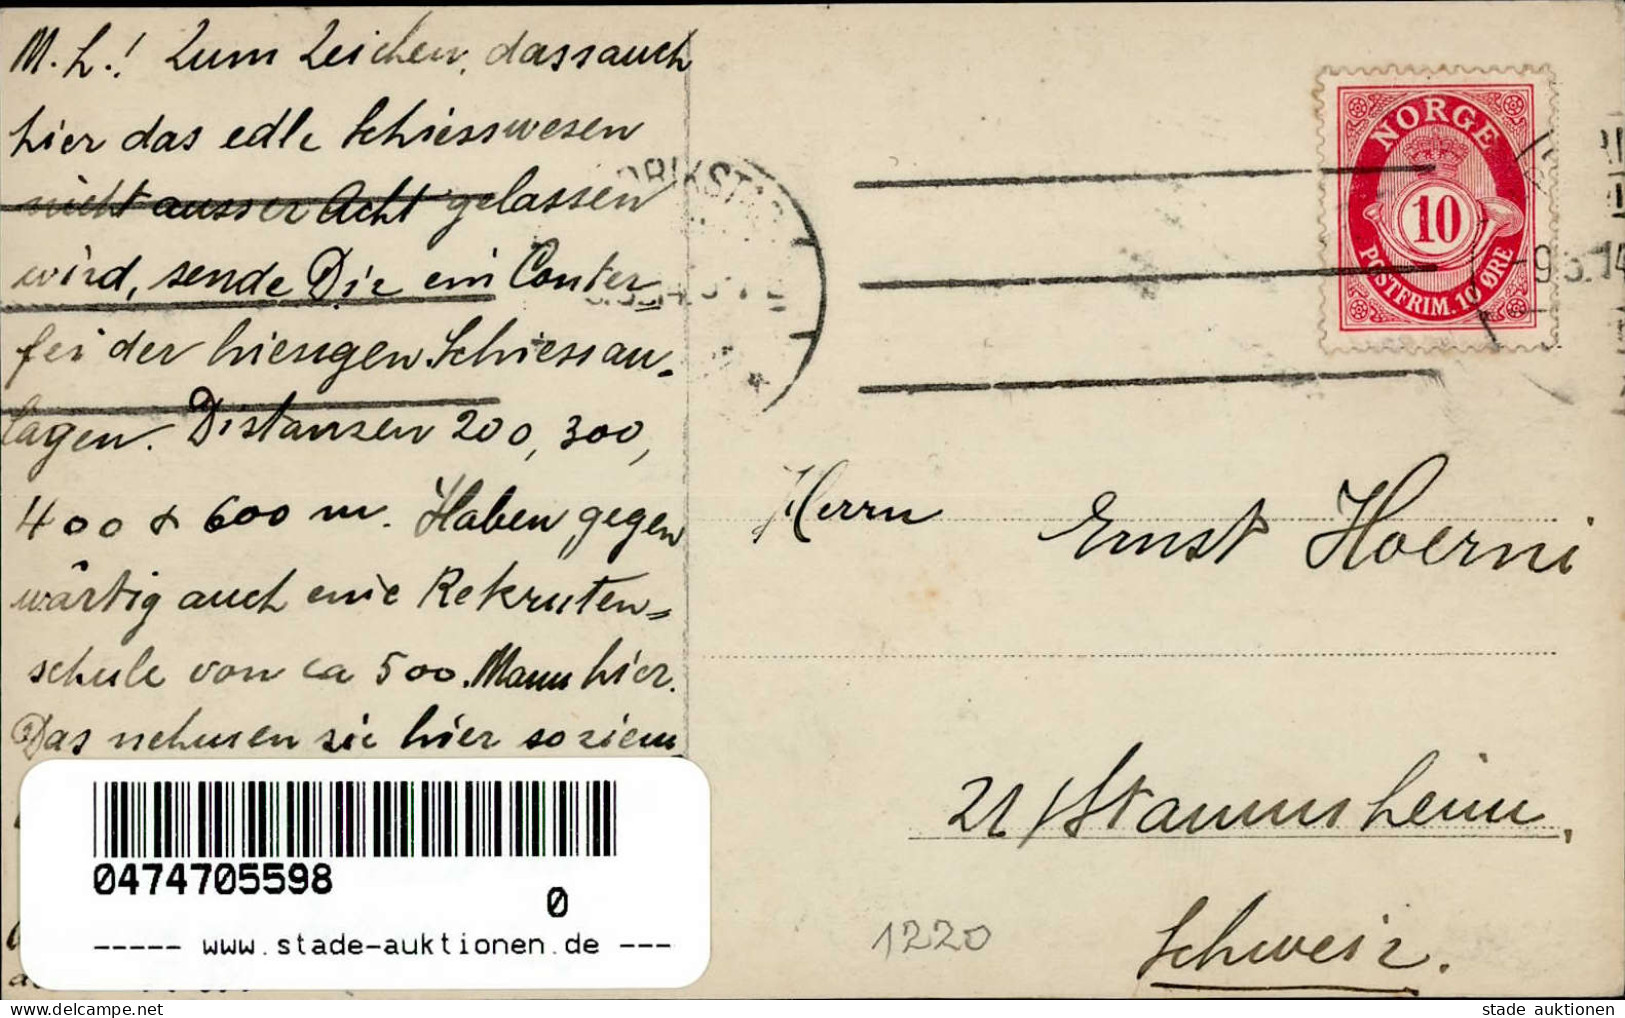 M. L.! Zum Zeichen, dass auch
hier das edle Schiesswesen
nicht ausser Acht gelassen
wird, sende Dir ein Conter
fei der hiesigen Schiessan-
lagen. Distanzen 200, 300,
400 & 600 m. Haben gegen
wärtig auch eine Rekruten=
schule von ca 500 Mann hier.
Das nehmen sie hier so ziem
DRIKSTAD
NORGE
10
POSTFRIM. 10 ØRE
-9.5.14
Herrn Ernst Hoerni
Stammheim,
Schweiz.
1220
0474705598
0
----- www.stade-auktionen.de ---
stade auktionen